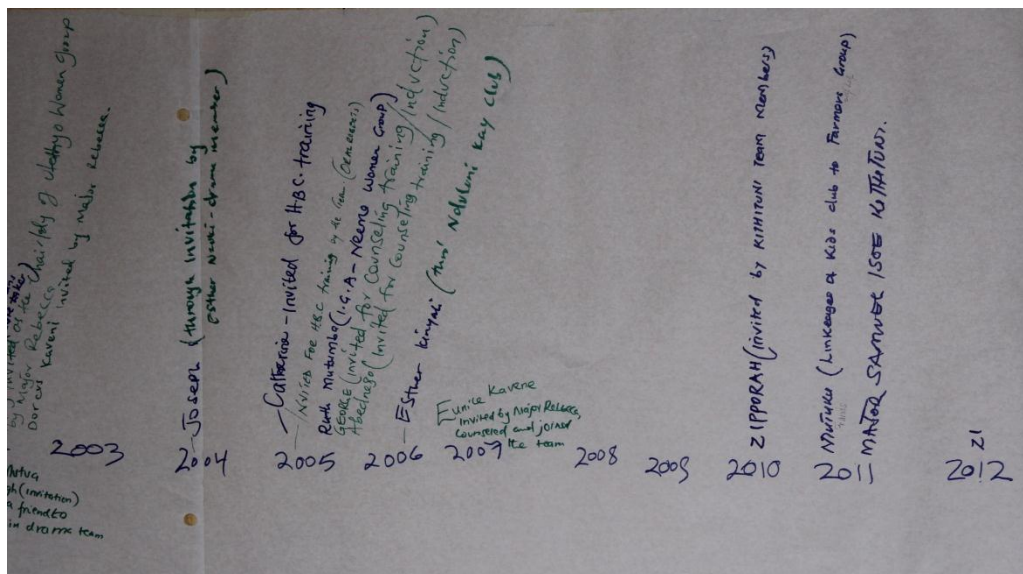 by Major Rebecca
invited as the chairlady of
Women group
Dorcus Kaveni invited by major Rebecca.
2003
(invitation)
a friend to
in drama team
Joseph (through Invitation by
esther - drama member)
2004
Catherine - Invited for HBC. training
for HBC training by the
Ruth Mutumbo (I.G.A - Neema Women Group)
GEORGE (invited for Counseling training/induction)
Abednego (invited for counseling training/induction)
2005
Esther Kinyai (thru' Ndulumi Kay Club)
2006
Eunice Kavene
invited by Major Rebecca,
counseled and joined
the team
2007
2008
2009
ZIPPORAH (invited by KITHITUNI Team Members)
2010
Mutuku (Linkages of Kids club to Farmers Group)
MAJOR SAMUEL KITHITUNI.
2011
ZI
2012